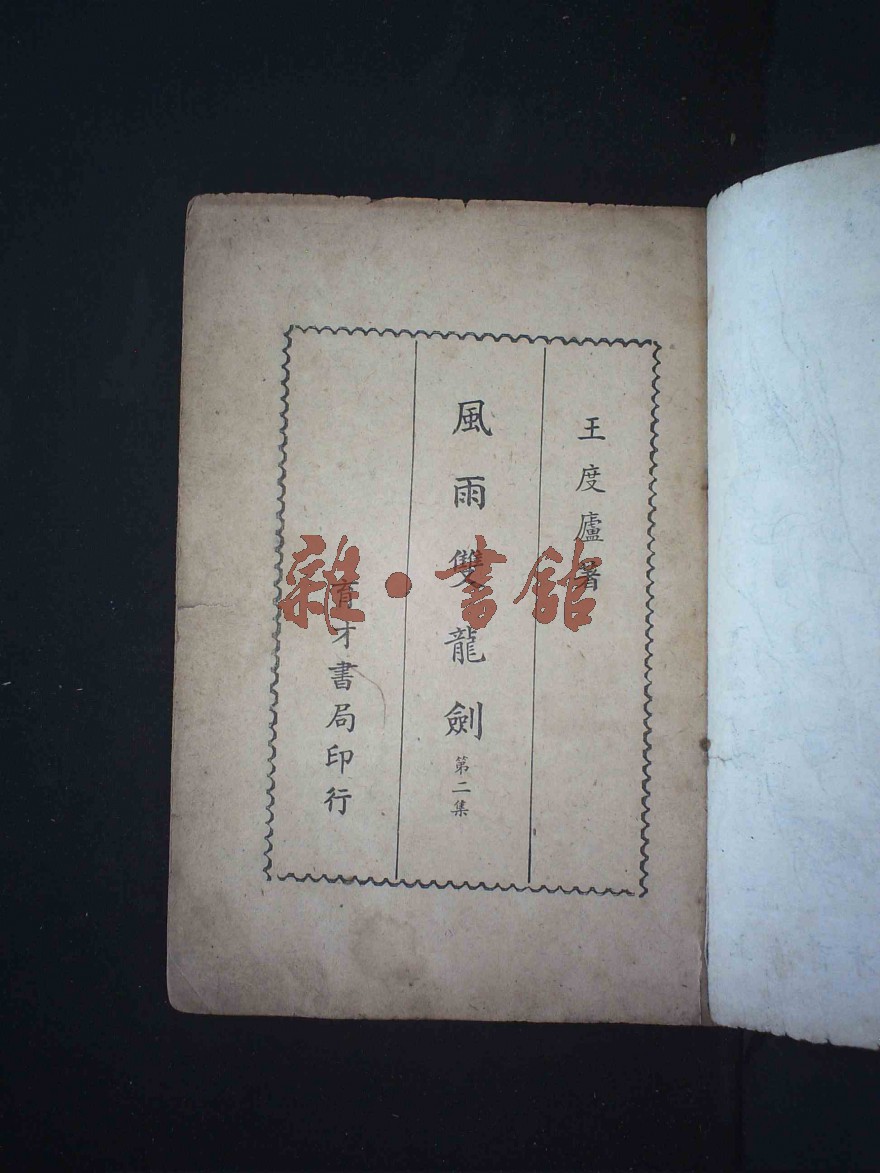 王度廬著
風雨雙龍劍 第二集
育才書局印行
雜·書館